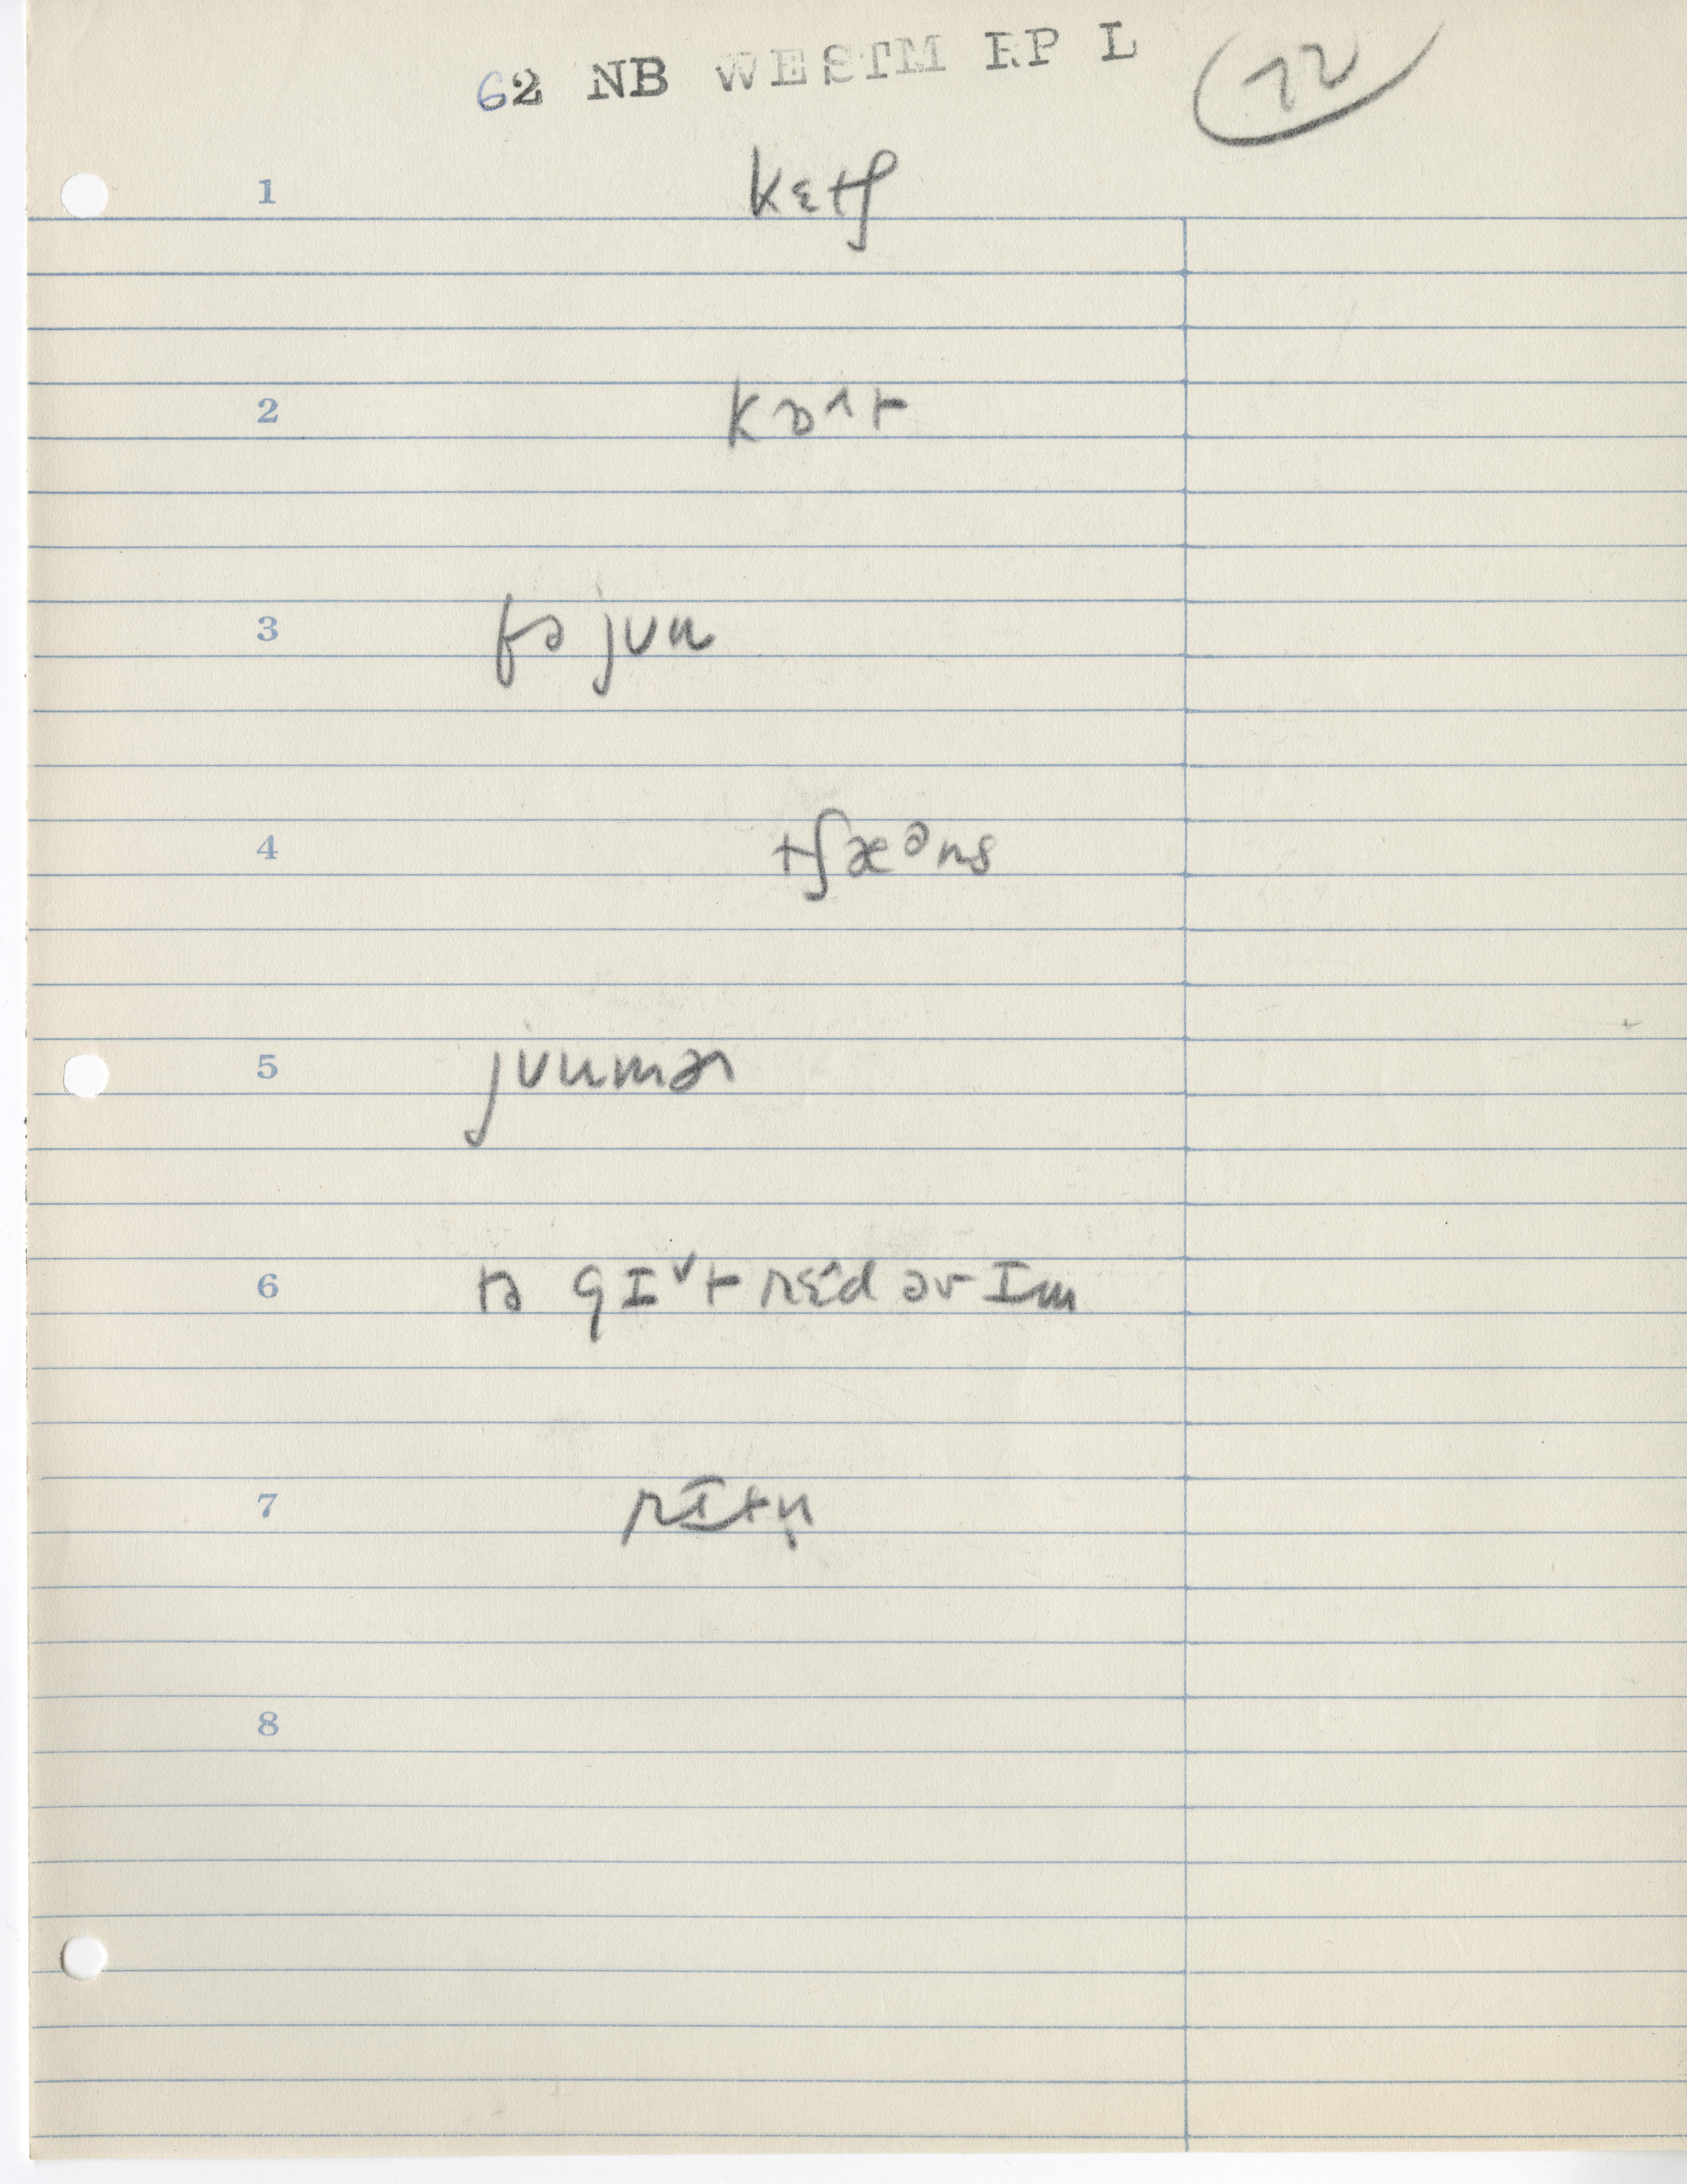 62 NB WESTM RP L 72
1 kɛtʃ
2 kɒ^t
3 fə jʊu
4 tʃæᵊns
5 jʊumɚ
6 tə gɪˇt rɛ^d əv ɪm
7 rɪtn̩
8